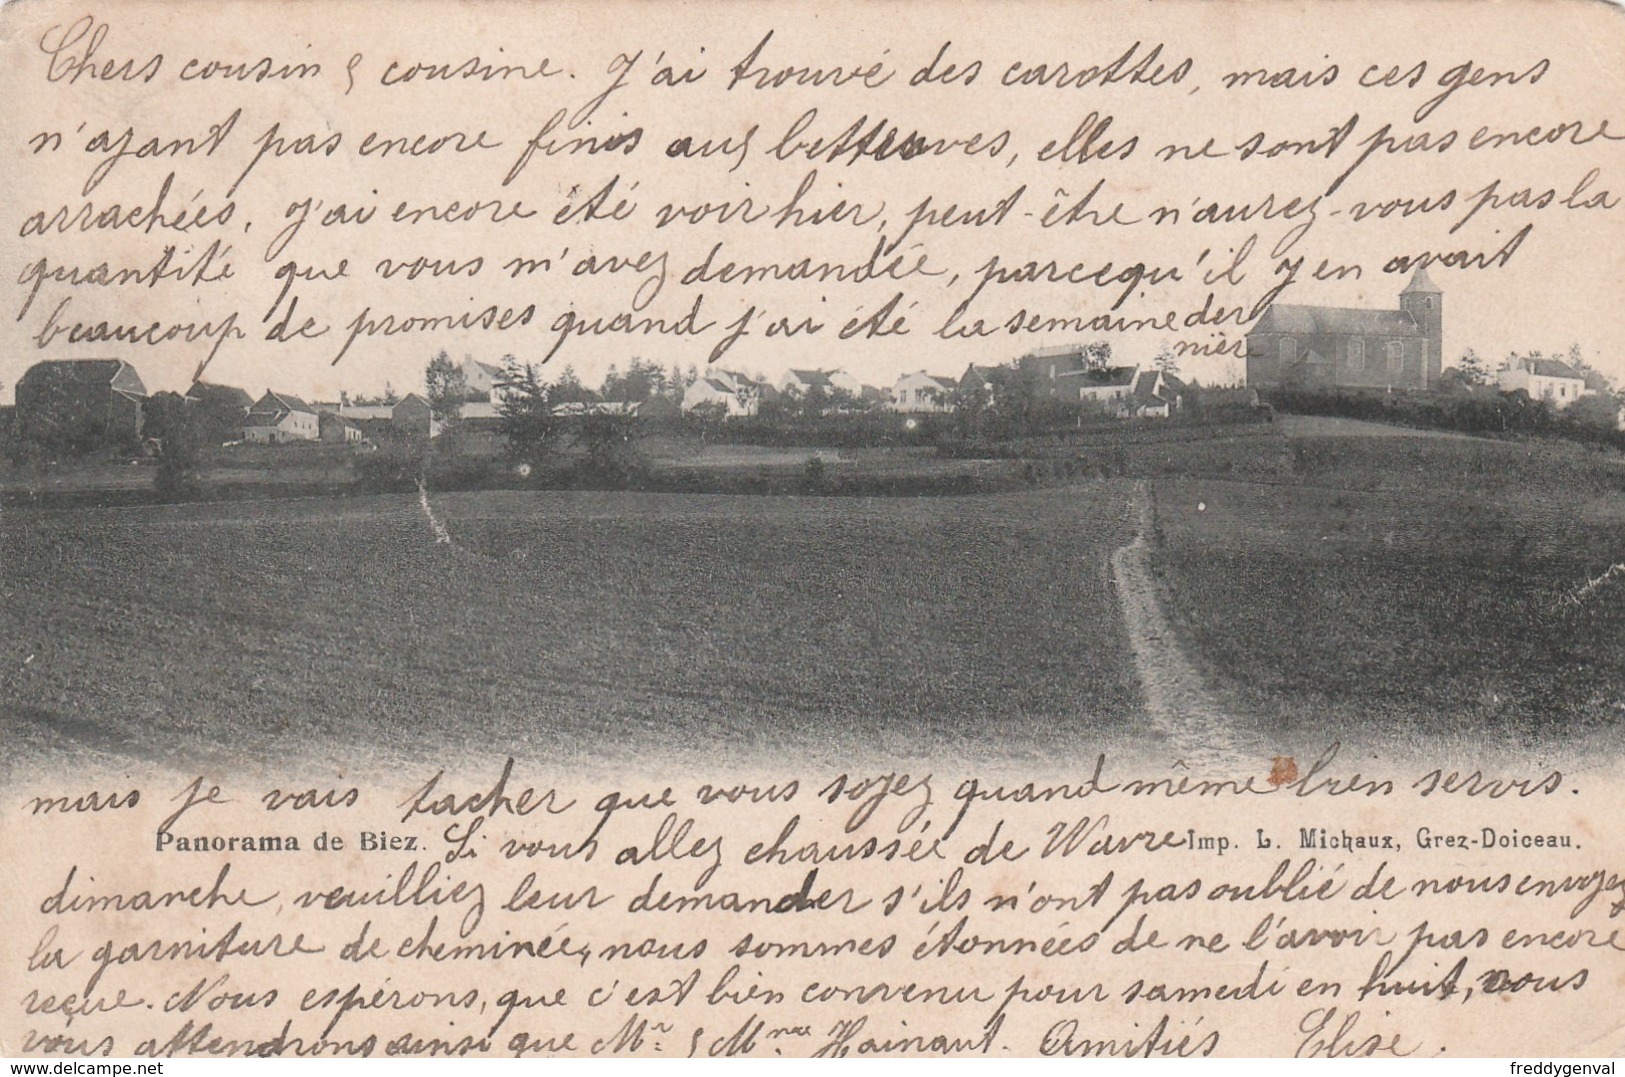 Chers cousin & cousine. J'ai trouvé des carottes, mais ces gens
n'ayant pas encore finis aux bettraves, elles ne sont pas encore
arrachées, j'ai encore été voir hier, peut-être n'aurez-vous pas la
quantité que vous m'avez demandée, parcequ'il y en avait
beaucoup de promises quand j'ai été la semaine der
nière
mais je vais tacher que vous soyez quand même bien servis.
Panorama de Biez. Si vous allez chaussée de Wavre Imp. L. Michaux, Grez-Doiceau.
dimanche, veuilliez leur demander s'ils n'ont pas oublié de nous envoyez
la garniture de cheminée, nous sommes étonnées de ne l'avoir pas encore
reçue. Nous espérons, que c'est bien convenu pour samedi en huit, nous
vous attendrons ainsi que Mr. & Mme. Hainaut. Amitiés Elise.
delcampe.net
freddygenval